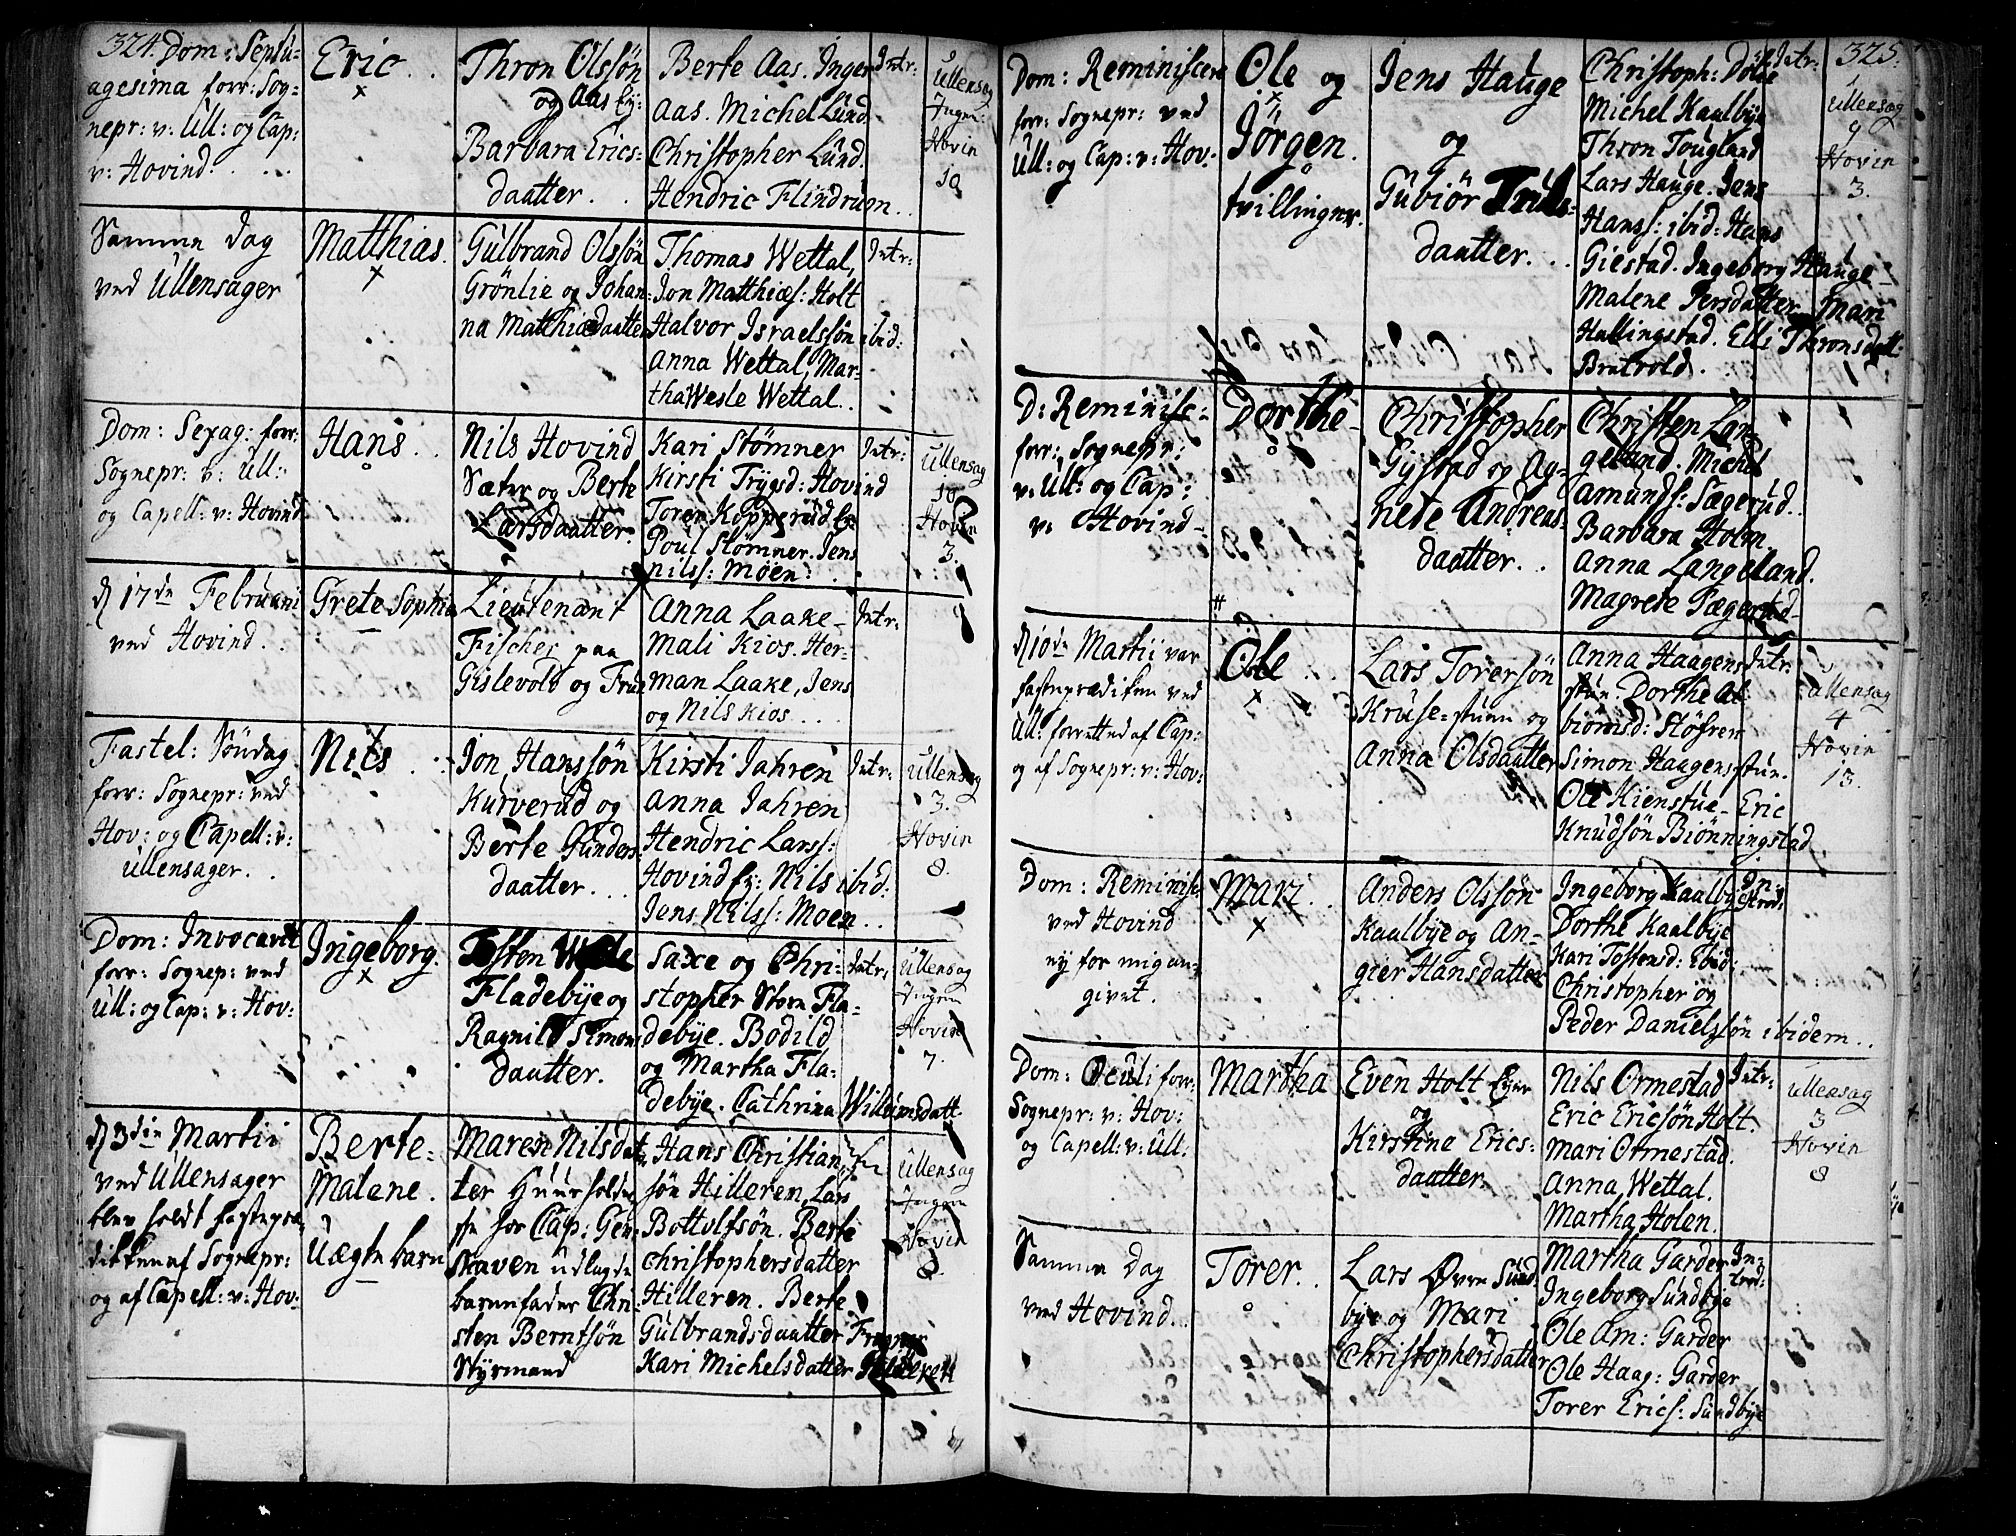 324. Dom: Septu-
agesima forr: Sog-
nepr: v: Ull: og Cap:
v: Hovind. . . .
Eric . .
Thron Olssøn
og Aas Ey:
Barbara Erics-
daatter. .
Berte Aas. Inger
Aas. Michel Lund
Christopher Lund.
Hendric Flindruen . .
Intr:
Ullensag
Ingen
Hovin
10
Samme Dag
ved Ullensager
Matthias.
Gulbrand Olssøn
Grönlie og Johan-
na Matthiædaatter
Thomas Wettal,
Jon Matthiæs: Holt
Halvor Israelssøn ibid:
Anna Wettal, Mar-
tha Wesle Wettal. .
Intr:
Dom: Sexag: forr:
Sognepr: v: Ull:
og Capell: v: Hovind
Hans . .
Nils Hovind
Sæter og Berte
Larsdaatter.
Kari Stømner
Kirsti Trygsd: Hovind
Toren Kopperud Ey
Poul Stømner. Jens
Nilss: Moen. .
Intr:
Ullensag
10
Hovin
3.
d 17de Februarii
ved Hovind. .
Grete Sophia
Lieutenant
Fischer paa
Gislevold og Frue
Anna Laake-
Mali Kios. Her-
man Laake, Jens
og Nils Kios . . .
Intr:
Fastel: Søndag
forr: Sognepr: ved
Hov: og Capell: v:
Ullensager. .
Nils . .
Jon Hanssøn
Kurverud og
Berte Gunders-
daatter. .
Kirsti Jahren
Anna Jahren
Hendric Larss:
Hovind Ey: Nils ibid:
Jens Nilss: Moen . .
Intr:
Ullensag
3.
Hovin
8.
Dom: Invocavit
forr: Sognep: ved
Ull: og Cap: v: Hov:
Ingeborg.
Tosten Wesle
Fladebye og
Ragnild Simons
daatter.
Saxe og Chri-
stopher Store Fla-
debye. Bodild
og Martha Fla-
debye. Cathrina Willumsdatt.
Intr:
Ullensag
Ingen
Hovin
7.
d 3die Martii
ved Ullensager
blev holdt fastepræ-
diken af Sognepr:
og af Capell: v: Hov:
Berte-
Malene.
Uægte barn
Maren Nilsdat-
ter Huusholder-
ske hos Cap:
udlagde
barnefader Chri-
sten Berntsøn
Styrmand
Hans Christian-
søn Hilleren, Lars
Bottolfsøn. Berte
Christophersdatter
Hilleren. Berte
Gulbrandsdaatter Frogner
Kari Michelsdatter Hilleren
Ullensag
Ingen
Hovin
8.
325.
Dom: Reminiscere
forr: Sognepr: ved
Ull: og Cap: v: Hov:
Ole og
Jörgen.
tvillinger.
Jens Hauge
og
Gubiör Truls-
daatter. .
Christoph: Døhle
Michel Kaalbye
Thron Tougland
Lars Hauge. Jens
Hanss: ibid: Hans
Giestad. Ingeborg Hauge-
Malene Persdatter. Mari
Hallingstad. Elli Thronsdatt:
Bratvold.
Intr:
Ullensag
9
Hovin
3.
D: Reminisc-
forr: Sognepr:
v: Ull: og Cap:
v: Hovind-
Dorthe-
Christopher
Gystad og Ag-
nete Andreas-
daatter. .
Christen Lan-
geland. Michel
Amunds: Sægerud. .
Barbara Holm
Anna Langeland.
Magrete Fægerstad-
d 10de Martii var
fasteprædiken ved
Ull: forrettet af Cap:
og af Sognepr: v: Hov:
Ole . .
Lars Torersøn
Kruse-stuen og
Anna Olsdaatter
Anna Haagens
stun. Dorthe Al-
biörnsd: Høfren
Simon Haagensstun.
Ole Kienstue- Eric
Knudsøn Biönningstad
Intr:
Ullensag
4
Hovin
13.
Dom: Reminisc
ved Hovind
ej for mig an-
givet.
Mari . .
Anders Olssøn
Kaalbye og An-
gier Hansdatter
Ingeborg Kaalbye
Dorthe Kaalbye
Kari Tostensd: Ibid:
Christopher og
Peder Danielssøn ibidem . .
In-
trod:
Dom: Oculi forr:
Sognepr: v: Hov:
og Capell: v: Ull:
Martha
Even Holt Eyer
og
Kirstine Erics-
daatter.
Nils Ormestad
Eric Ericsøn Holt.
Mari Ormestad.
Anna Wettal.
Martha Holen.
Intr:
Ullensag
3
Hovin
8
Samme Dag
ved Hovind. .
Torer. .
Lars Øvre Sund
bye og Mari
Christophersdatter
Martha Garder
Ingeborg Sundbye
Ole Am: Garder
Ole Haag: Garder
Torer Erics: Sundbye
In-
trod: